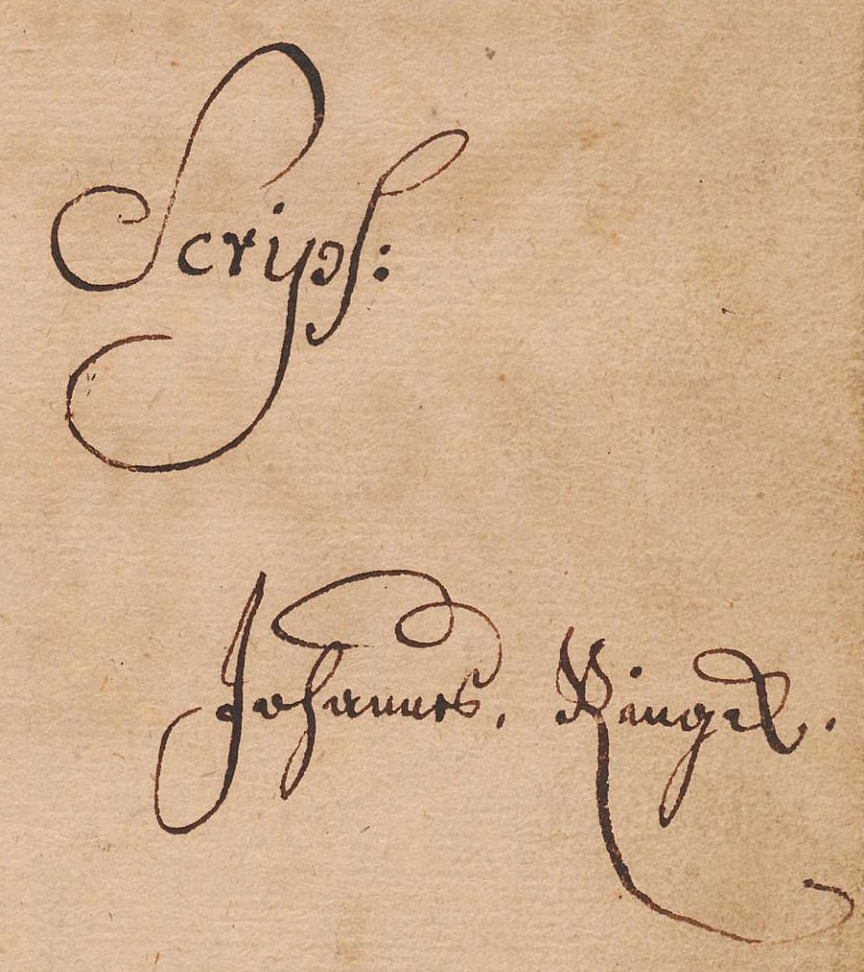 Scrips:
Johannes. Ringel.